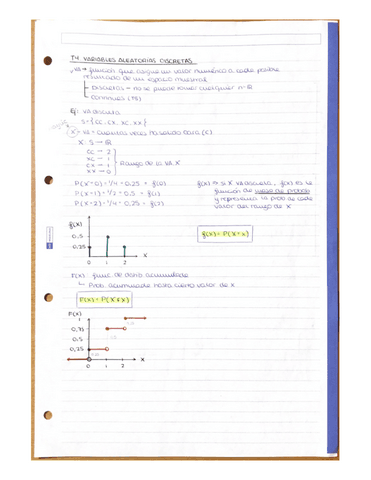 T4. VARIABLES ALEATORIAS DISCRETAS
VA → función que asigna un valor numérico a cada posible
resultado de un espacio muestral
Discretas → no se puede tomar cualquier nº ℝ
Continuas (T5)
Ej: VA discreta
S = {CC, CX, XC, XX}
X = VA = cuantas veces ha salido cara (C)
X: S → ℝ
CC → 2
XC → 1
CX → 1
XX → 0
Rango de la VA X
P(X=0) = 1/4 = 0,25 = f(0)
P(X=1) = 1/2 = 0,5 = f(1)
P(X=2) = 1/4 = 0,25 = f(2)
f(x) → si X VA discreta, f(x) es la
función de
y representa la prob de cada
valor del rango de X
f(x) = P(X=x)
f(x)
0,5
0,25
0 1 2 X
F(x) = func. de distrib acumulada
Prob. acumulada hasta cierto valor de X
F(x) = P(X≤x)
F(x)
1
0,75
0,5
0,25
0 1 2 X